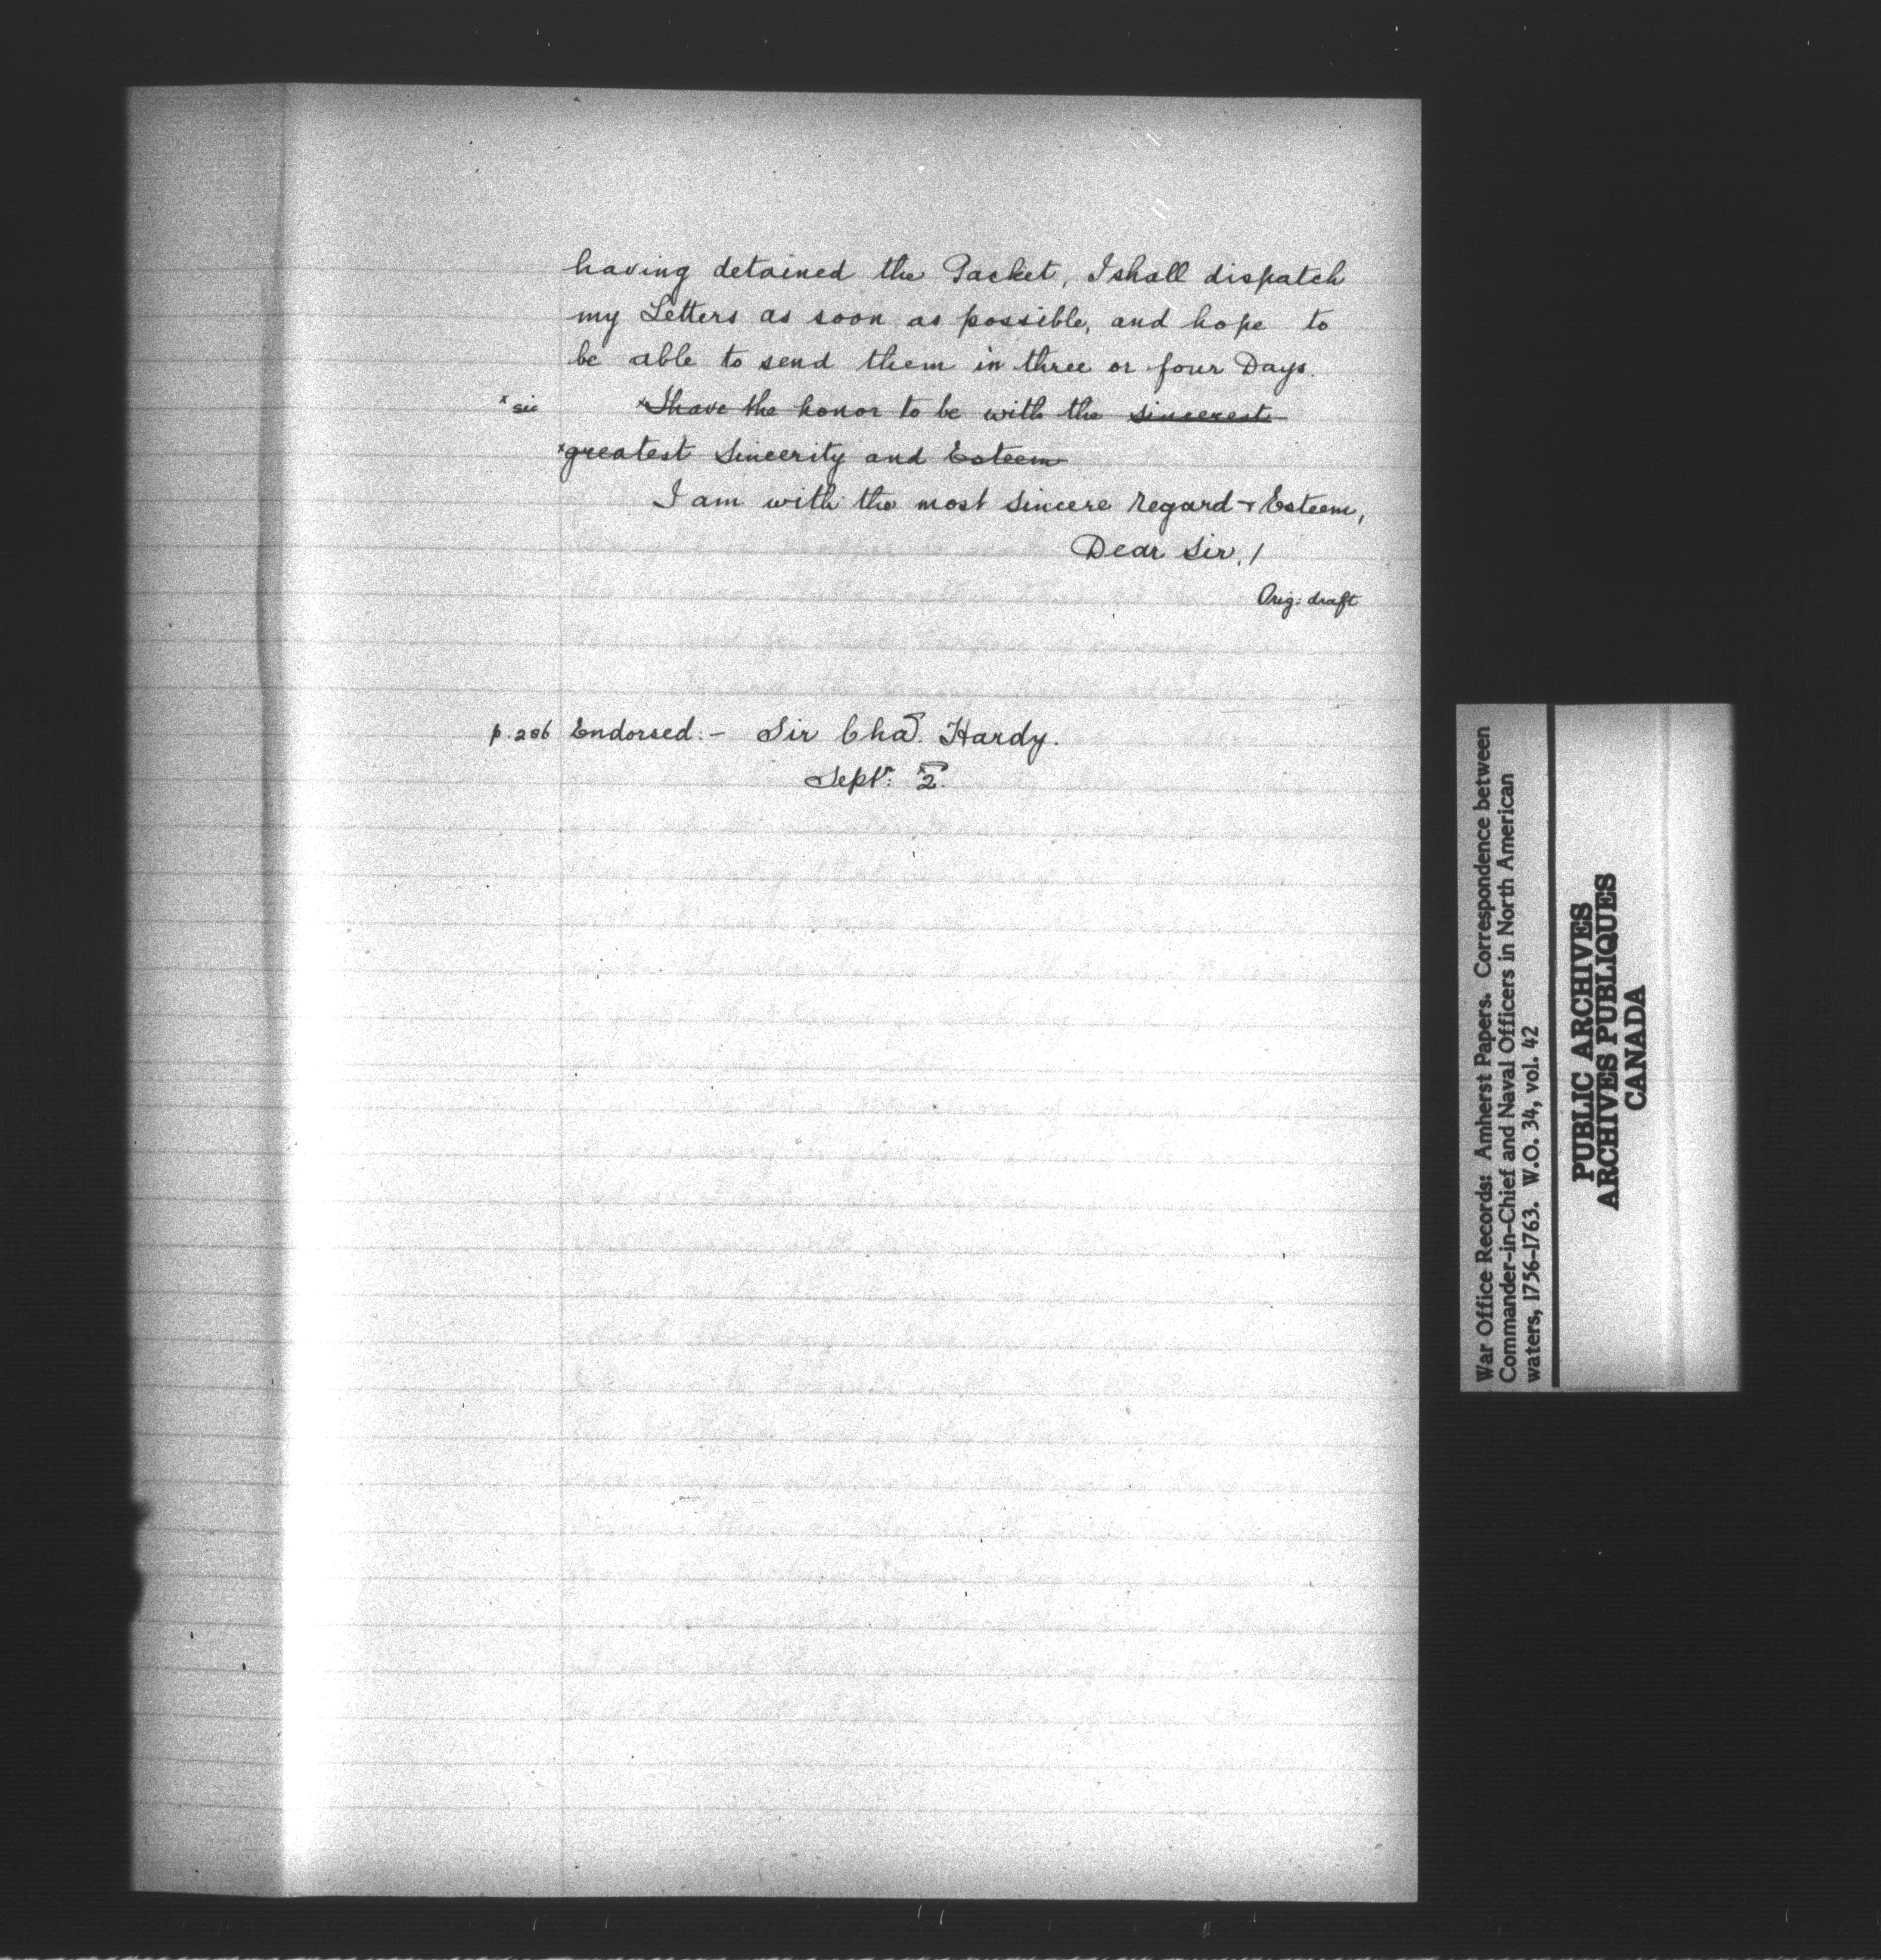 having detained the Packet, I shall dispatch
my Letters as soon as possible, and hope to
be able to send them in three or four Days.
x sic xI have the honor to be with the sincerest
xgreatest Sincerity and Esteem
I am with the most sincere Regard & Esteem,
Dear Sir,/
Orig: draft
p. 206 Endorsed:- Sir Chas. Hardy.
Septr: 2.
War Office Records: Amherst Papers. Correspondence between
Commander-in-Chief and Naval Officers in North American
waters, 1756-1763. W.O. 34, vol. 42
PUBLIC ARCHIVES
ARCHIVES PUBLIQUES
CANADA